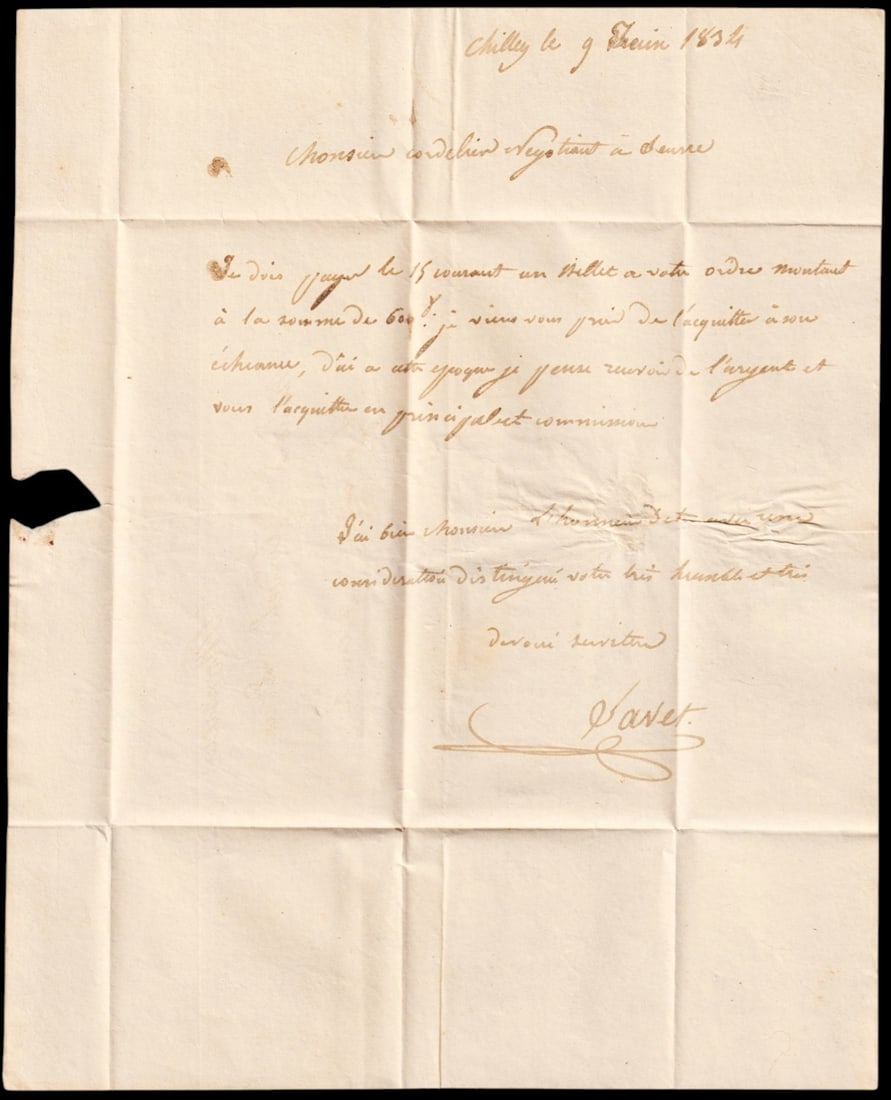 Chilley le 9 Juin 1834
Monsieur cordelier Negotiant à Seurre
Je dois payer le 15 courant un Billet a votre ordre montant
à la somme de 600 f: je viens vous prier de l'acquitter à son
écheance, d'ici a cette epoque je pense recevoir de l'argent et
vous l'acquitter en principal et commission
J'ai bien Monsieur L'honneur avec une
consideration distinguée votre très humble et très
devoué serviteur
Javet.